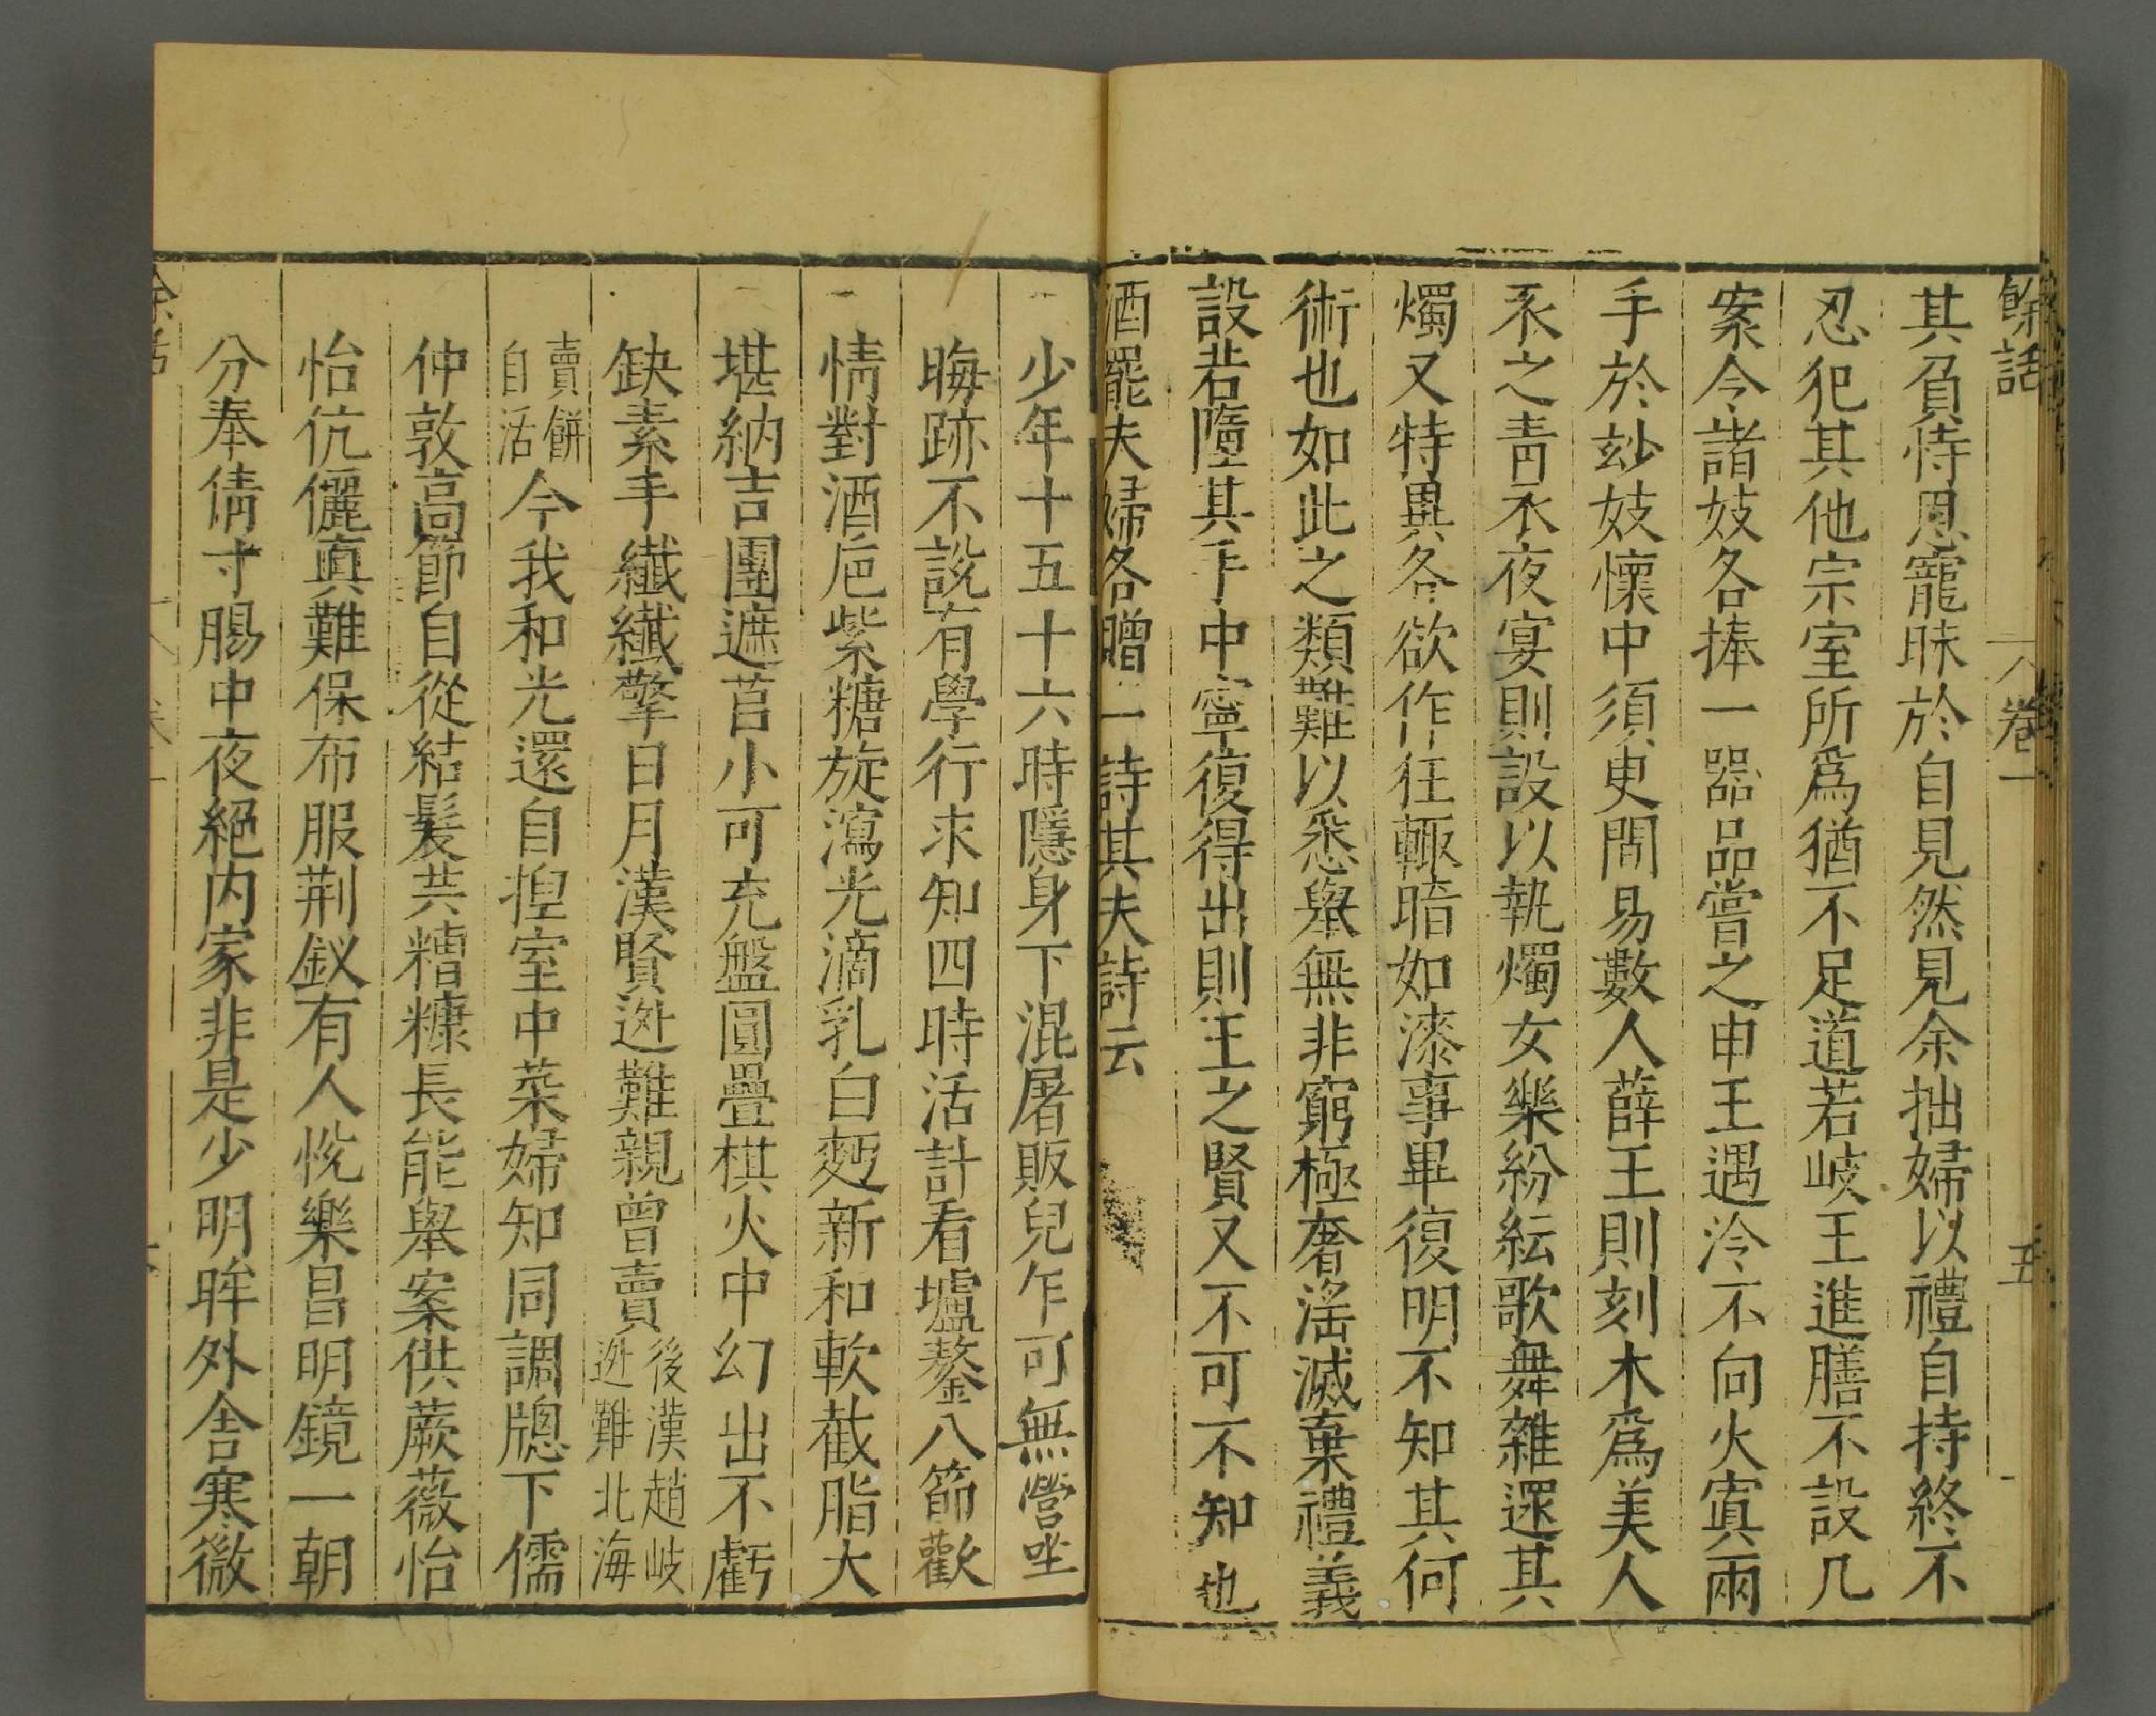 餘話
卷一
五
其負恃恩寵昧於自見然見余拙婦以禮自持終不
忍犯其他宗室所爲猶不足道若岐王進膳不設几
案令諸妓各捧一器品嘗之申王遇冷不向火寘兩
手於玅妓懷中須臾間易數人薛王則刻木爲美人
衣之青衣夜宴則設以執燭女樂紛紜歌舞雜遝其
燭又特異各欲作狂輒暗如漆事畢復明不知其何
術也如此之類難以悉舉無非窮極奢淫滅棄禮義
設若墮其手中寧復得出則王之賢又不可不知也
酒罷夫婦各贈一詩其夫詩云
少年十五十六時隱身下混屠販兒乍可無營坐
晦跡不說有學行求知四時活計看壚鏊八節歡
情對酒巵紫糖旋瀉光滴乳白麪新和軟截脂大
堪納吉團遮莒小可充盤圓疊棋火中幻出不虧
缺素手纖纖擎日月漢賢逃難親曾賣後漢趙岐逃難北海
賣餅自活今我和光還自揑室中菜婦知同調牎下儒
仲敦高節自從結髮共糟糠長能舉案供蕨薇怡
怡伉儷真難保布服荆釵有人悅樂昌明鏡一朝
分奉倩寸賜中夜絕内家非是少明眸外舍寒微